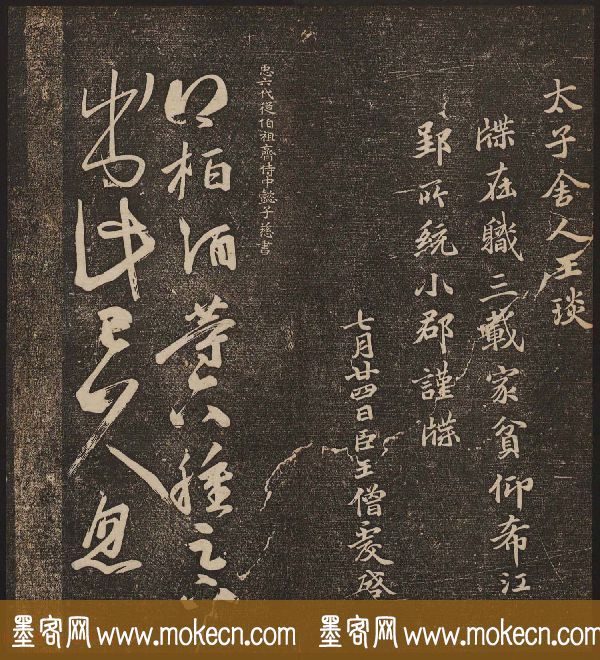 太子舍人王琰
牒在職三載家貧仰希江
郢所統小郡謹牒
七月廿四日臣王僧虔啓
𢘑六代從伯祖齊侍中懿子慈書
得柏酒等六種足下
出此已久忽
墨客网 www.mokecn.com 墨客网 www.mokecn.com